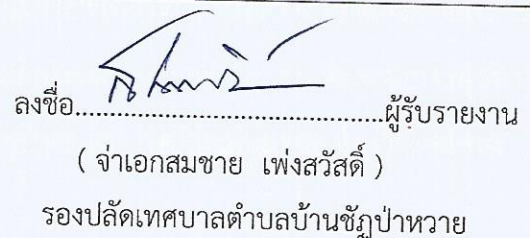 ลงชื่อ........................................ผู้รับรายงาน
( จ่าเอกสมชาย เพ่งสวัสดิ์ )
รองปลัดเทศบาลตำบลบ้านชัฏป่าหวาย